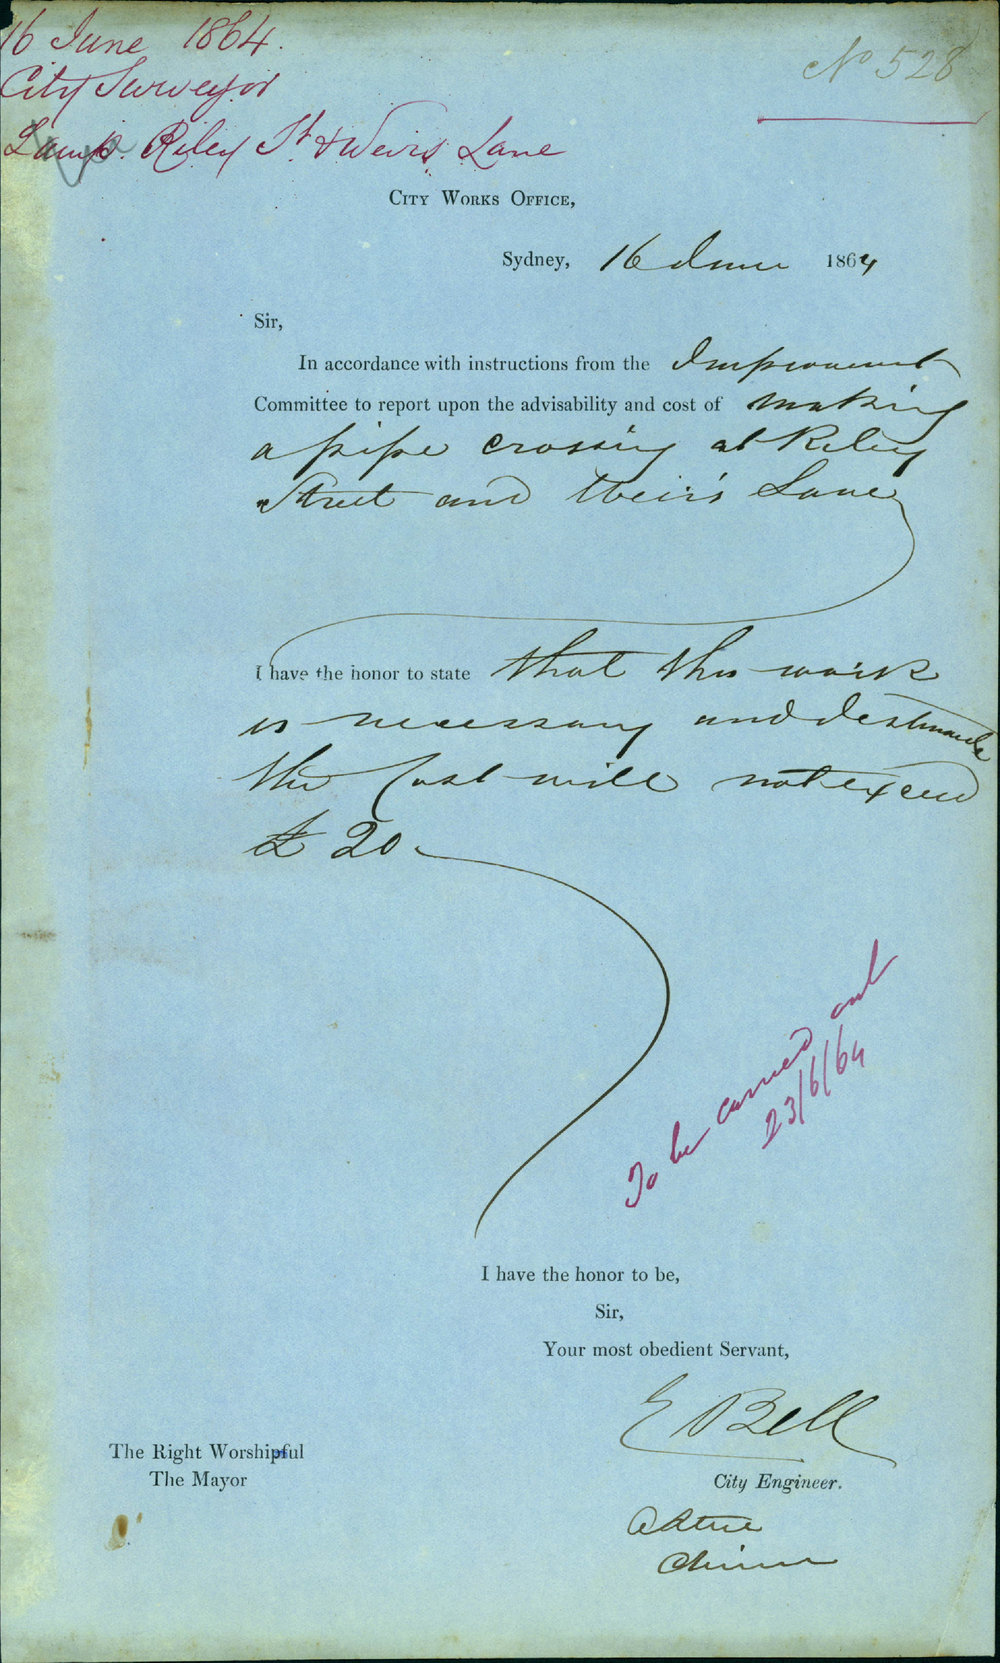 16 June 1864.
City Surveyor
Lamp. Riley St & Weirs Lane
No 528
City Works Office,
Sydney, 16 June 1864
Sir,
In accordance with instructions from the Improvement
Committee to report upon the advisability and cost of making
a pipe crossing at Riley
Street and Weir's Lane
I have the honor to state that this work
is necessary and I estimate
the Cost will not exceed
£20
To be carried out
23/6/64
I have the honor to be,
Sir,
Your most obedient Servant,
E Bell
The Right Worshipful
The Mayor
City Engineer.